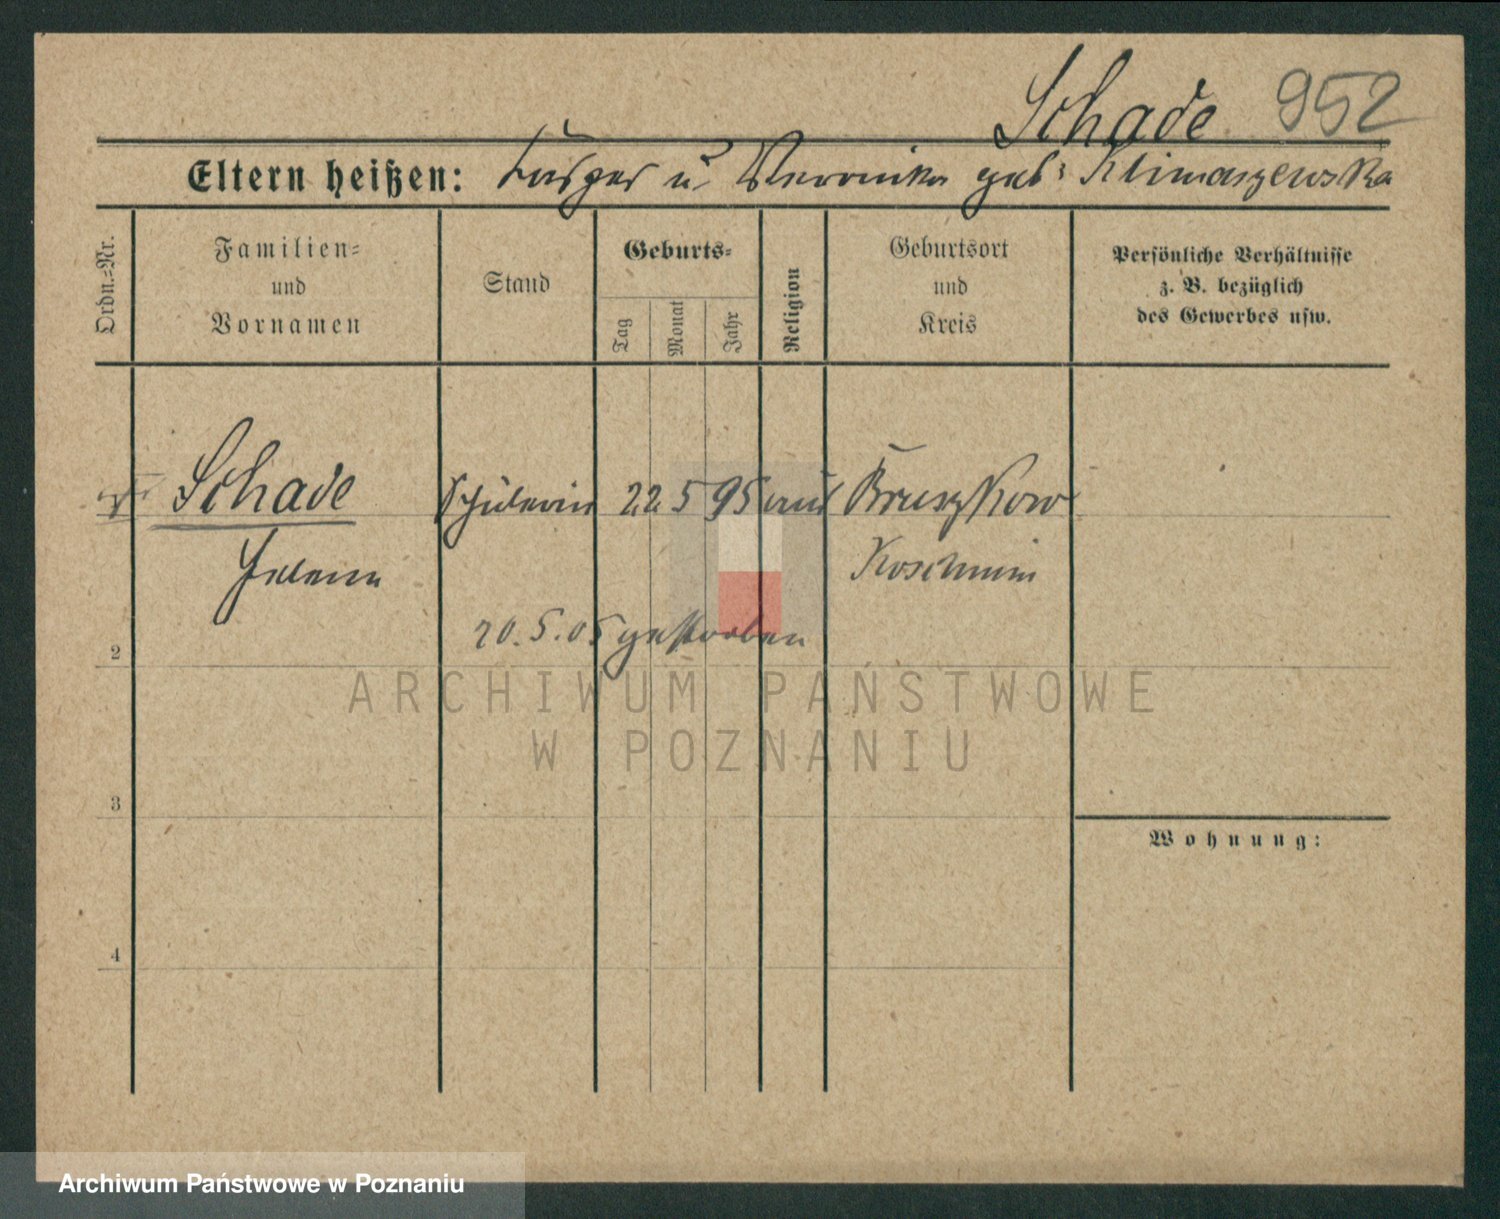 Schade 952
Eltern heißen: u. Veronika geb: Klimaszewska
Ordn.=Nr.
Familien=
und
Vornamen
Stand
Geburts=
Tag
Monat
Jahr
Religion
Geburtsort
und
Kreis
Persönliche Verhältnisse
z. B. bezüglich
des Gewerbes usw.
Schade Schülerin 22 5 95 Bruczkow
Helene Koschmin
20. 5. 05 gestorben
2
ARCHIWUM PAŃSTWOWE
W POZNANIU
3
Wohnung:
4
Archiwum Państwowe w Poznaniu